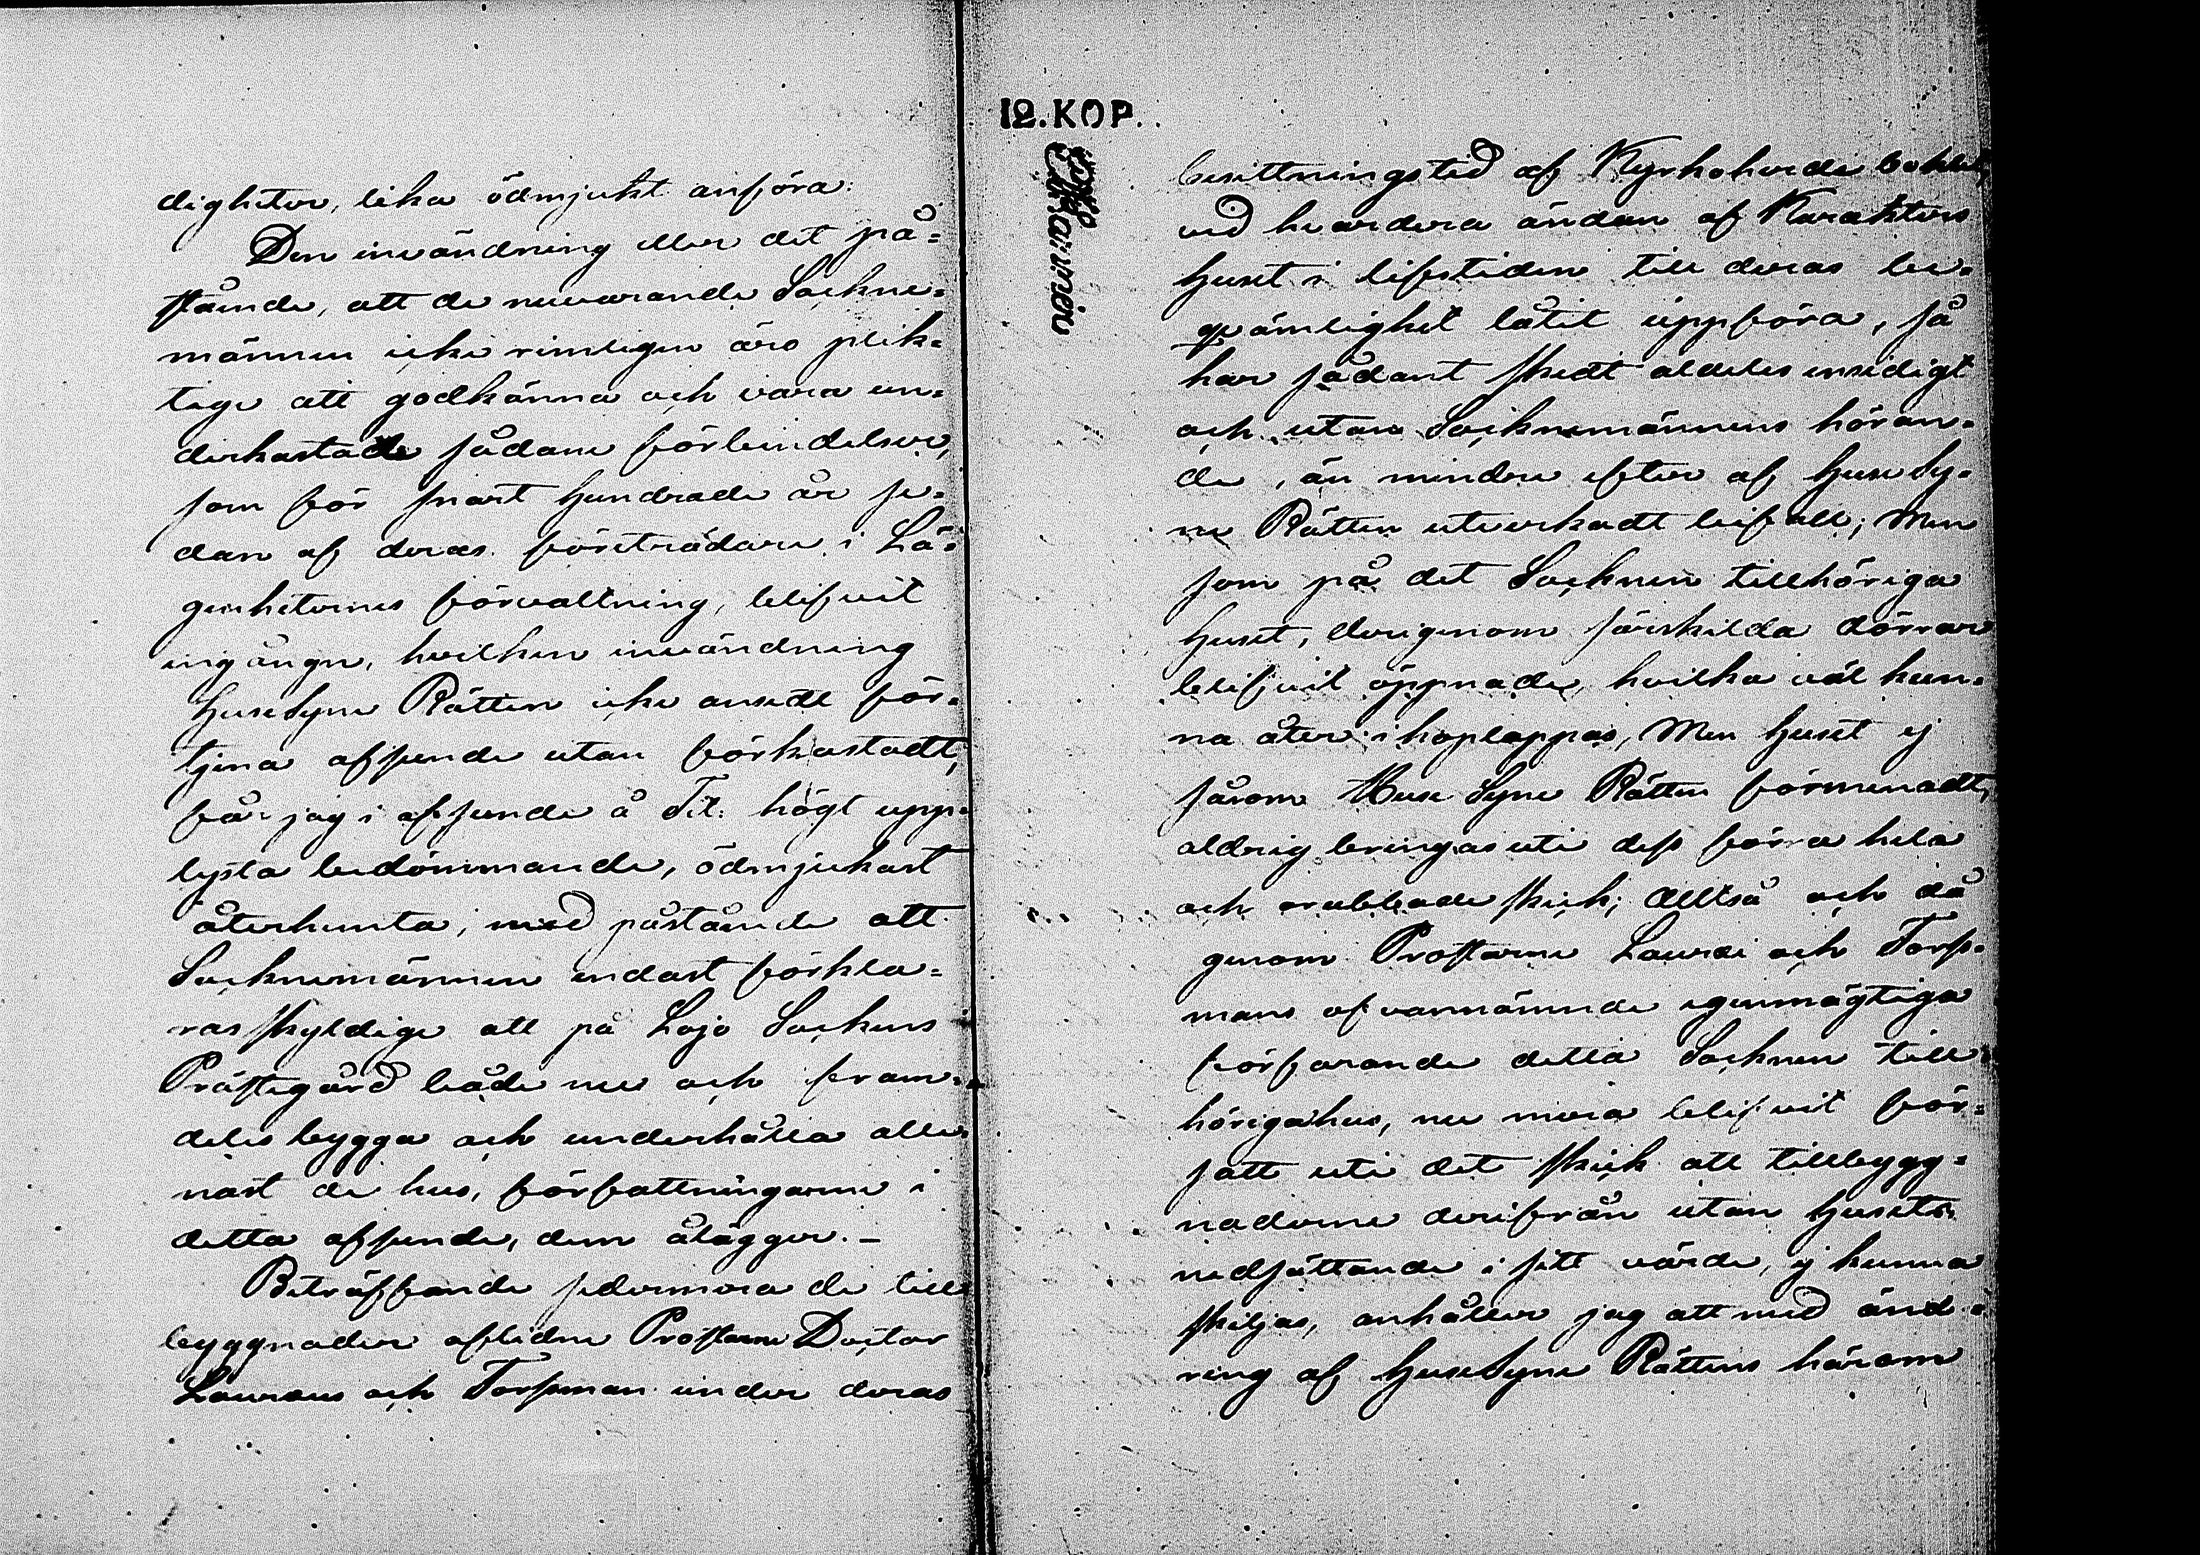 digheter, lika ödmjukt anföra:
Den invändning eller det på=
stående, att de nuvarande Sockne=
männen icke rimligen äro plik=
tige att godkänna och vara un=
derkastade sådane förbindelser,
som för snart hundrade år se=
dan af deras företrädare i Lä=
genheternes förvaltning, blifvit
ingångne, hvilken invändning
HuseSyne Rätten icke ansedt för=
tjena afseende utan förkastadt,
får jag i afseende å Tit: högt upp=
lysta bedömmande, ödmjukast
återhemta, med påstående att
Socknemännen endast förkla=
ras skyldige att på Lojo Sockens
Prästegård både nu och fram=
deles bygga och underhålla alle=
nast de hus, författningarne i
detta afseende, dem ålägger. —
Beträffande sedermera de till=
byggnader aflidne Prostarne Doctor
Lauraeus och Forsman under deras
12. KOP.
besittningstid af Kyrkoherde bohlet,
vid hvardera ändan af Karakters
huset i lifstiden till deras be=
qvämlighet låtit uppföra, så
har sådant skedt aldeles ensidigt
och utan Socknemännens höran=
de, än mindre efter af HuseSy=
ne Rätten utverkadt bifall; Men
som på det Socknen tillhöriga
huset, derigenom särskilda dörrar
blifvit öppnade, hvilka väl kun=
na åter ihoplappas, Men huset ej
såsom Huse Syne Rätten förmenadt,
aldrig bringas uti dess förra hela
och orubbade skick; Alltså och då
genom Prostarne Laurei och Forss=
mans ofvannämnde egenmägtiga
förfarande detta Socknen till=
höriga hus, nu mera blifvit för=
satt uti det skick att tillbygg=
naderne derifrån utan husets
nedsättande i sitt värde, ej kunna
skiljas, anhåller jag att med änd=
ring af HuseSyne Rättens härom